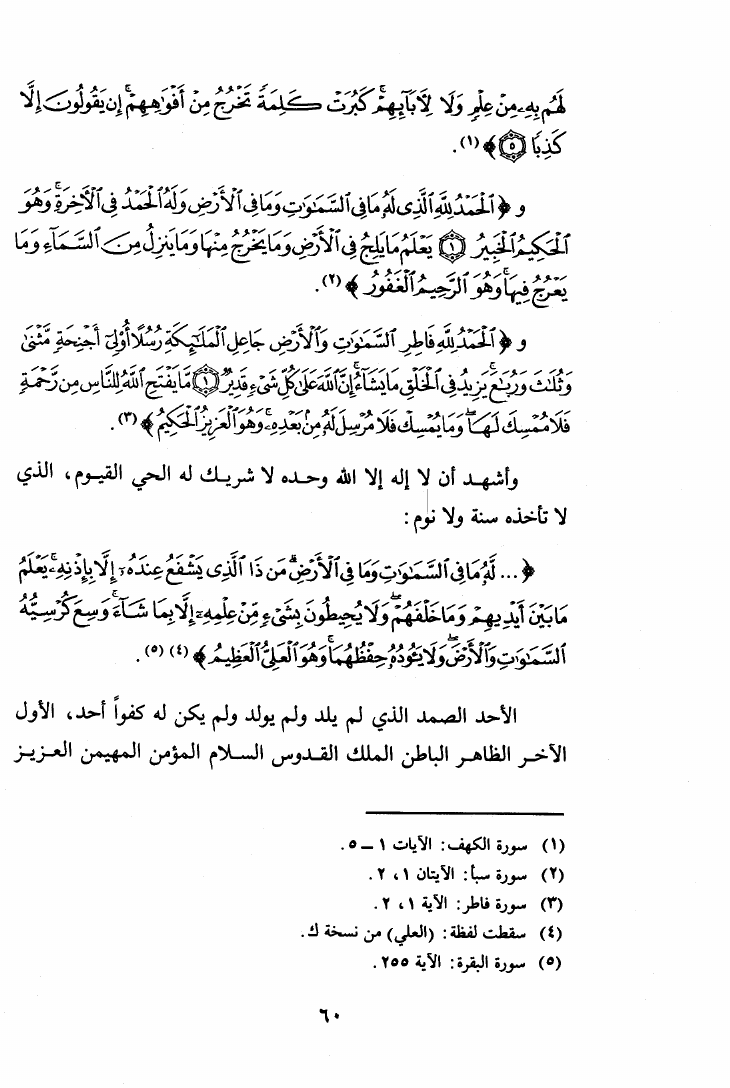 لَهُم بِهِۦ مِنْ عِلْمٍ وَلَا لِأَبَآئِهِمْ ۚ كَبُرَتْ كَلِمَةً تَخْرُجُ مِنْ أَفْوَٰهِهِمْ ۚ إِن يَقُولُونَ إِلَّا
كَذِبًا ۝٥ ﴾ (١).
و ﴿ ٱلْحَمْدُ لِلَّهِ ٱلَّذِى لَهُۥ مَا فِى ٱلسَّمَٰوَٰتِ وَمَا فِى ٱلْأَرْضِ وَلَهُ ٱلْحَمْدُ فِى ٱلْأَخِرَةِ ۚ وَهُوَ
ٱلْحَكِيمُ ٱلْخَبِيرُ ۝١ يَعْلَمُ مَا يَلِجُ فِى ٱلْأَرْضِ وَمَا يَخْرُجُ مِنْهَا وَمَا يَنزِلُ مِنَ ٱلسَّمَآءِ وَمَا
يَعْرُجُ فِيهَا ۚ وَهُوَ ٱلرَّحِيمُ ٱلْغَفُورُ ﴾ (٢).
و ﴿ ٱلْحَمْدُ لِلَّهِ فَاطِرِ ٱلسَّمَٰوَٰتِ وَٱلْأَرْضِ جَاعِلِ ٱلْمَلَٰٓئِكَةِ رُسُلًا أُو۟لِىٓ أَجْنِحَةٍ مَّثْنَىٰ
وَثُلَٰثَ وَرُبَٰعَ ۚ يَزِيدُ فِى ٱلْخَلْقِ مَا يَشَآءُ ۚ إِنَّ ٱللَّهَ عَلَىٰ كُلِّ شَىْءٍ قَدِيرٌ ۝١ مَّا يَفْتَحِ ٱللَّهُ لِلنَّاسِ مِن رَّحْمَةٍ
فَلَا مُمْسِكَ لَهَا ۖ وَمَا يُمْسِكْ فَلَا مُرْسِلَ لَهُۥ مِنۢ بَعْدِهِۦ ۚ وَهُوَ ٱلْعَزِيزُ ٱلْحَكِيمُ ﴾ (٣).
وأشهد أن لا إله إلا الله وحده لا شريك له الحي القيوم، الذي
لا تأخذه سنة ولا نوم:
﴿ ... لَّهُۥ مَا فِى ٱلسَّمَٰوَٰتِ وَمَا فِى ٱلْأَرْضِ ۗ مَن ذَا ٱلَّذِى يَشْفَعُ عِندَهُۥٓ إِلَّا بِإِذْنِهِۦ ۚ يَعْلَمُ
مَا بَيْنَ أَيْدِيهِمْ وَمَا خَلْفَهُمْ ۖ وَلَا يُحِيطُونَ بِشَىْءٍ مِّنْ عِلْمِهِۦٓ إِلَّا بِمَا شَآءَ ۚ وَسِعَ كُرْسِيُّهُ
ٱلسَّمَٰوَٰتِ وَٱلْأَرْضَ ۖ وَلَا يَـُٔودُهُۥ حِفْظُهُمَا ۚ وَهُوَ ٱلْعَلِىُّ ٱلْعَظِيمُ ﴾ (٤) (٥).
الأحد الصمد الذي لم يلد ولم يولد ولم يكن له كفواً أحد، الأول
الآخر الظاهر الباطن الملك القدوس السلام المؤمن المهيمن العزيز
(١) سورة الكهف: الآيات ١ ــ ٥.
(٢) سورة سبأ: الآيتان ١، ٢.
(٣) سورة فاطر: الآية ١، ٢.
(٤) سقطت لفظة: (العلي) من نسخة ك.
(٥) سورة البقرة: الآية ٢٥٥.
٦٠